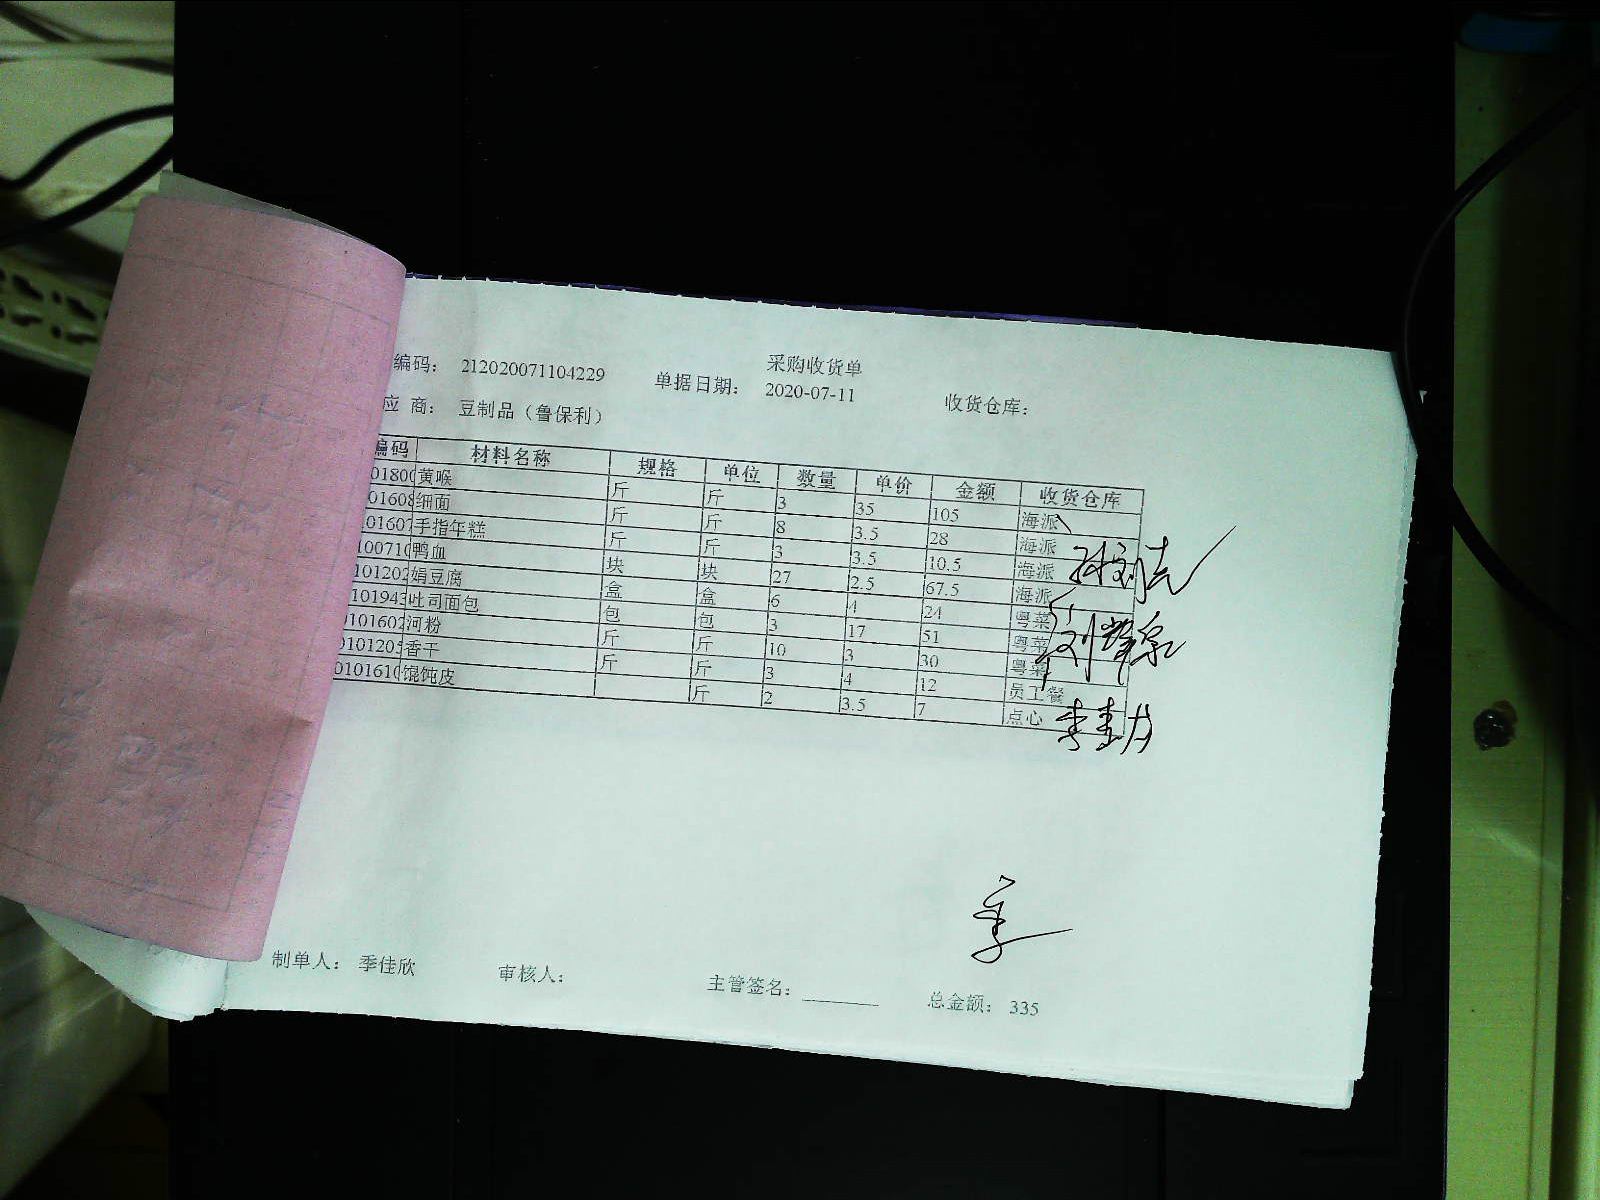 采购收货单
编码： 212020071104229 单据日期： 2020-07-11 收货仓库：
应 商： 豆制品（鲁保利）
编码 材料名称 规格 单位 数量 单价 金额 收货仓库
01800 黄喉 斤 斤 3 35 105 海派
01608 细面 斤 斤 8 3.5 28 海派
01607 手指年糕 斤 斤 3 3.5 10.5 海派
100710 鸭血 块 块 27 2.5 67.5 海派
101202 娟豆腐 盒 盒 6 4 24 粤菜
101943 吐司面包 包 包 3 17 51 粤菜
0101602 河粉 斤 斤 10 3 30 粤菜
0101205 香干 斤 斤 3 4 12 员工餐
0101610 馄饨皮 斤 2 3.5 7 点心
季
制单人： 季佳欣 审核人： 主管签名： 总金额： 335